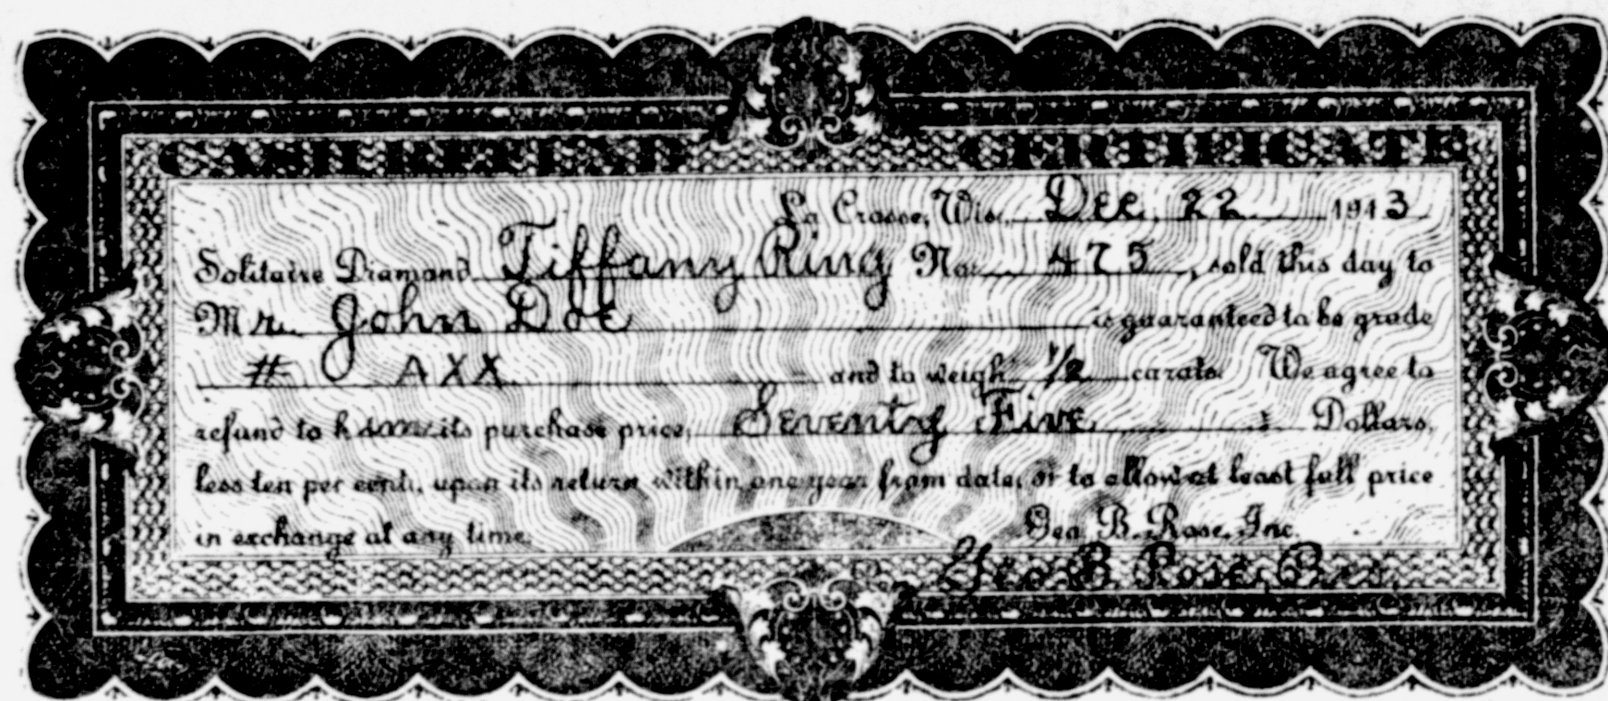 CASH REFUND CERTIFICATE
La Crosse, Wis., Dec. 22 1913
Solitaire Diamond Tiffany Ring No. 475, sold this day to
Mr. John Doe is guaranteed to be grade
# AXX and to weigh 1/2 carats. We agree to
refund to him its purchase price, Seventy Five Dollars,
less ten per cent, upon its return within one year from date, or to allow at least full price
in exchange at any time.
Geo. B. Rose, Inc.
Geo. B. Rose,